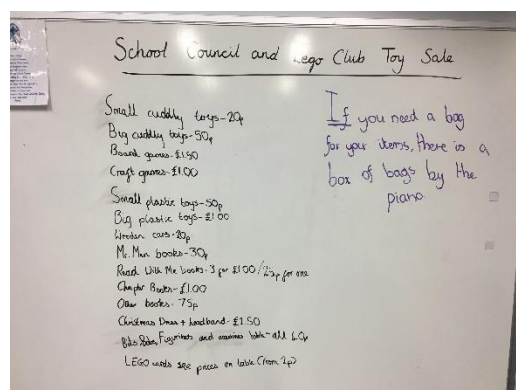 School Council and Lego Club Toy Sale
Small cuddly toys - 20p
Big cuddly toys - 50p
Board games - £1.50
Craft games - £1.00
Small plastic toys - 50p
Big plastic toys - £1.00
Wooden cars - 20p
Mr. Men books - 30p
Read With Me books - 3 for £1.00 / for one
Chapter Books - £1.00
Other books - 75p
Christmas Dress + headband - £1.50
and table - all
LEGO cards see prices on table (from 2p)
If you need a bag
for your items, there is a
box of bags by the
piano